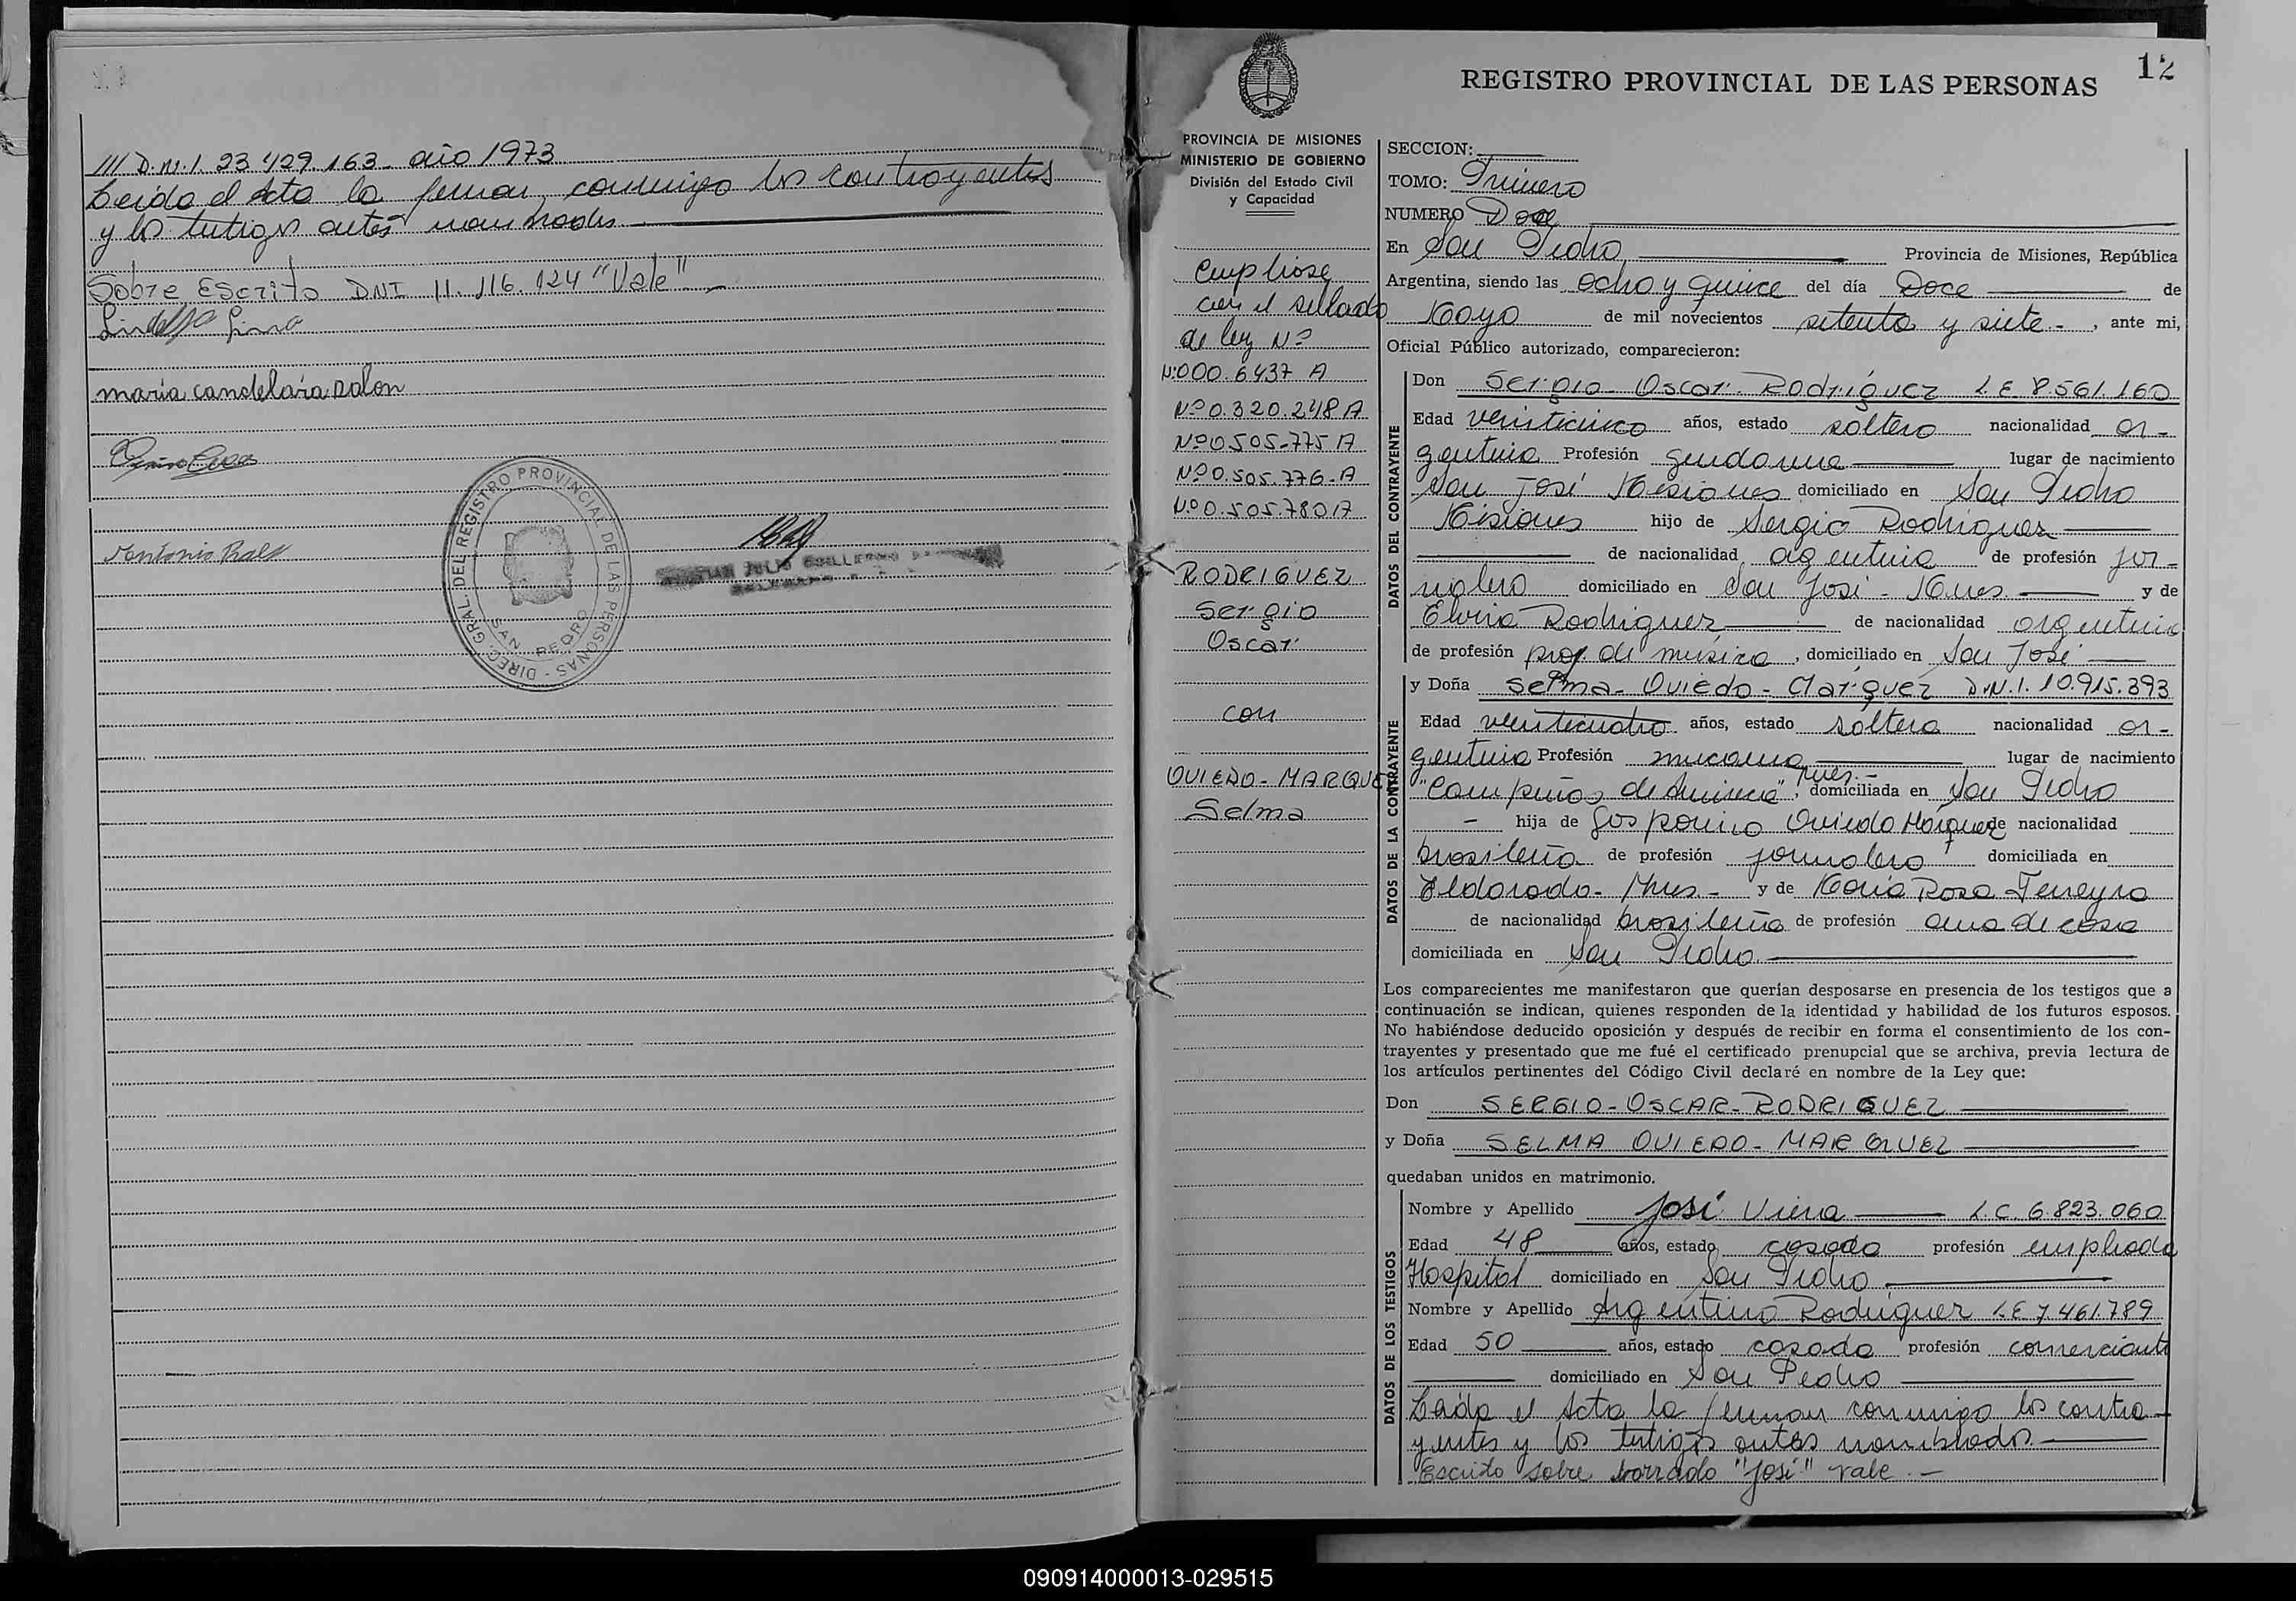 /// D.N.I. 23.429.163 - año 1973
Leída el Acta la firman conmigo los contrayentes
y los testigos antes nombrados
Sobre Escrito DNI 11.116.124 "Vale" -
maria candelaria
DIREC. GRAL. DEL REGISTRO PROVINCIAL DE LAS PERSONAS -
SAN PEDRO
12
REGISTRO PROVINCIAL DE LAS PERSONAS
PROVINCIA DE MISIONES
MINISTERIO DE GOBIERNO
División del Estado Civil
y Capacidad
con el sellado
de ley Nº
Nº 000.6437 A
Nº 0.320.248 A
Nº 0.505.775 A
Nº 0.505.776-A
Nº 0.505.780 A
RODRIGUEZ
Sergio
Oscar
con
OVIEDO - MARQUEZ
Selma
SECCION:
TOMO: Primero
NUMERO Doce
En San Pedro Provincia de Misiones, República
Argentina, siendo las ocho y quince del día Doce de
Mayo de mil novecientos setenta y siete - , ante mi,
Oficial Público autorizado, comparecieron:
DATOS DEL CONTRAYENTE
Don Sergio - Oscar - Rodríguez L E 8.561.160
Edad veinticinco años, estado soltero nacionalidad ar-
gentina Profesión gendarme lugar de nacimiento
San José Misiones domiciliado en San Pedro
Misiones hijo de Sergio Rodriguez
de nacionalidad argentina de profesión jor-
nalero domiciliado en San José - Mnes. y de
Elvira Rodriguez de nacionalidad argentina
de profesión prof. de música , domiciliado en San José
DATOS DE LA CONTRAYENTE
y Doña Selma - Oviedo - Marquez D.N.I. 10.915.393
Edad veinticuatro años, estado soltera nacionalidad ar-
gentina Profesión mucama lugar de nacimiento
"Campiñas de América" Mnes. - domiciliada en San Pedro
- hija de Oviedo Márquez de nacionalidad
brasileña de profesión jornalero domiciliada en
Eldorado - Mnes - y de María Rosa Ferreyra
de nacionalidad brasileña de profesión ama de casa
domiciliada en San Pedro
Los comparecientes me manifestaron que querían desposarse en presencia de los testigos que a
continuación se indican, quienes responden de la identidad y habilidad de los futuros esposos.
No habiéndose deducido oposición y después de recibir en forma el consentimiento de los con-
trayentes y presentado que me fué el certificado prenupcial que se archiva, previa lectura de
los artículos pertinentes del Código Civil declaré en nombre de la Ley que:
Don SERGIO - OSCAR - RODRIGUEZ
y Doña SELMA OVIEDO - MARQUEZ
quedaban unidos en matrimonio.
DATOS DE LOS TESTIGOS
Nombre y Apellido José Viera L.C. 6.823.060
Edad 48 años, estado casado profesión empleado
Hospital domiciliado en San Pedro
Nombre y Apellido Argentino Rodriguez L E 7.461.789
Edad 50 años, estado casado profesión comerciante
domiciliado en San Pedro
Leída el Acta la firman conmigo los contra-
yentes y los testigos antes nombrados
Escrito sobre borrado "José" vale. -
090914000013-029515